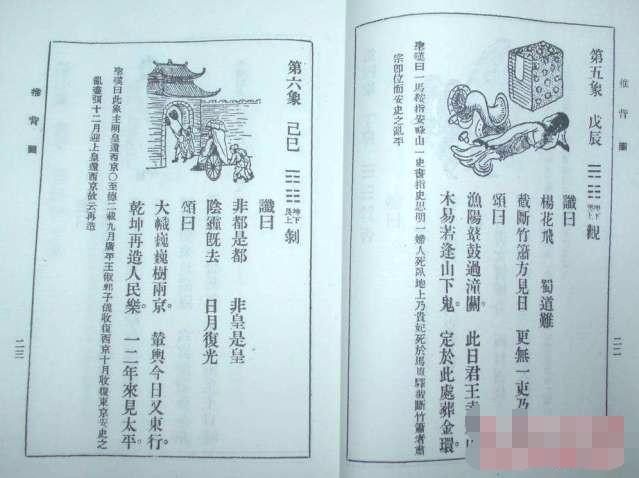 推背圖
二二
第五象 戊辰 坤下巽上 觀
讖曰
楊花飛 蜀道難
截斷竹簫方見日 更無一吏乃
頌曰
漁陽鼙鼓過潼關。 此日君王
木易若逢山下鬼。 定於此處葬金環。
聖嘆曰一馬鞍指安祿山一史書指史思明一婦人死臥地上乃貴妃死於馬嵬驛截斷竹簫者肅
宗即位而安史之亂平
第六象 己巳 坤下艮上 剝
讖曰
非都是都 非皇是皇
陰霾既去 日月復光
頌曰
大幟巍巍樹兩京。 輦輿今日又東行。
乾坤再造人民樂。 一二年來見太平。
聖嘆曰此象主明皇還西京○至德二載九月廣平王俶郭子儀收復西京十月收復東京安史之
亂盡弭十二月迎上皇還西京故云再造
推背圖
二三